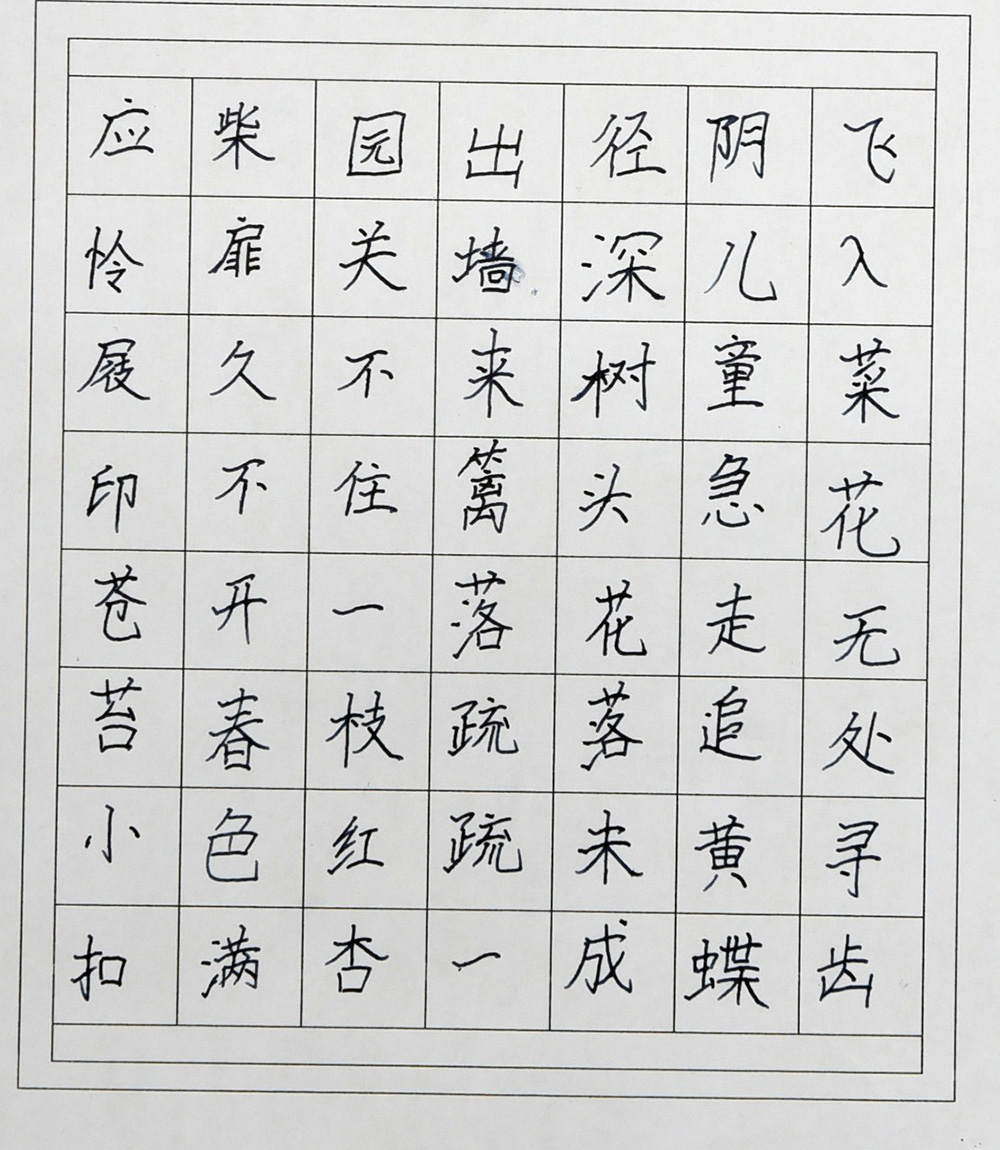 应怜屐印苍苔小扣
柴扉久不开春色满
园关不住一枝红杏
出墙来篱落疏疏一
径深树头花落未成
阴儿童急走追黄蝶
飞入菜花无处寻齿